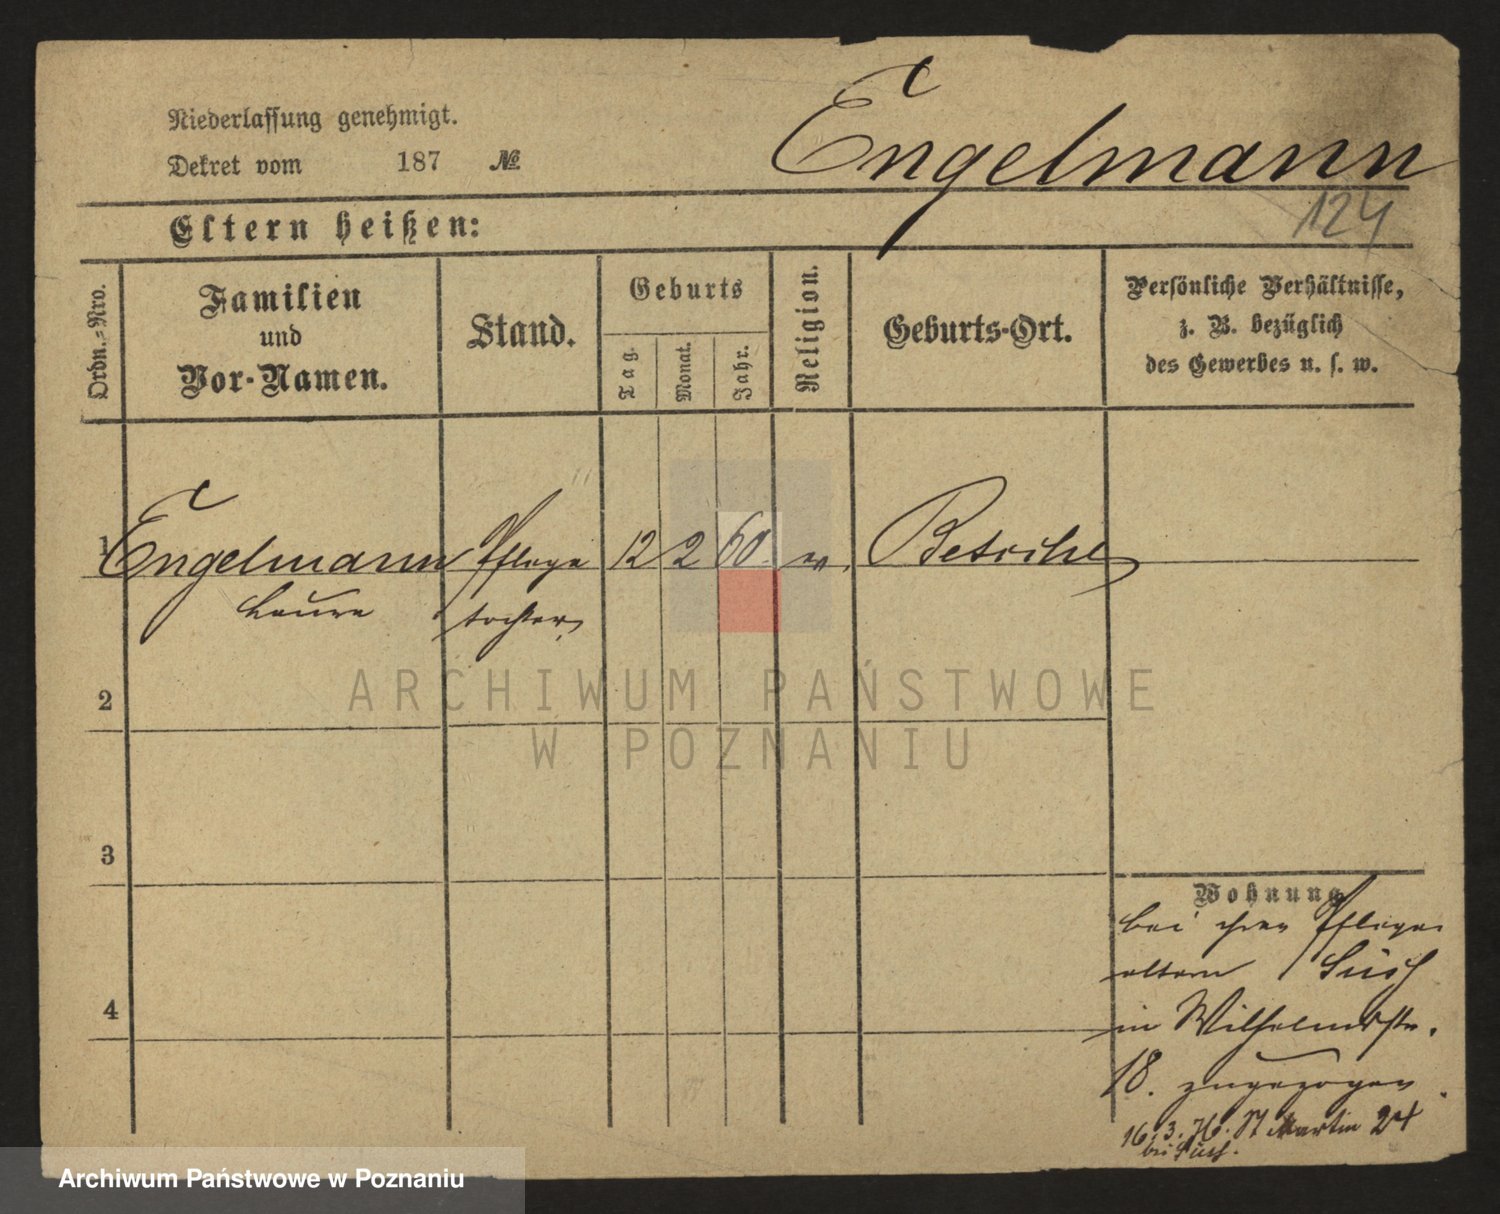 Niederlassung genehmigt.
Dekret vom 187 №
Engelmann
124
Eltern heißen:
Ordn.-Nro.
Familien
und
Vor-Namen.
Stand.
Geburts
Tag.
Monat.
Jahr.
Religion.
Geburts-Ort.
Persönliche Verhältnisse,
z. B. bezüglich
des Gewerbes u. s. w.
1 Engelmann Pflege 12 2 60 Betsche
Laura tochter
2
3
4
Wohnung
bei ihren Pflege
eltern
in Wilhelmstr.
18. zugezogen
16.3.76. St Martin 24
bei
ARCHIWUM PAŃSTWOWE
W POZNANIU
Archiwum Państwowe w Poznaniu